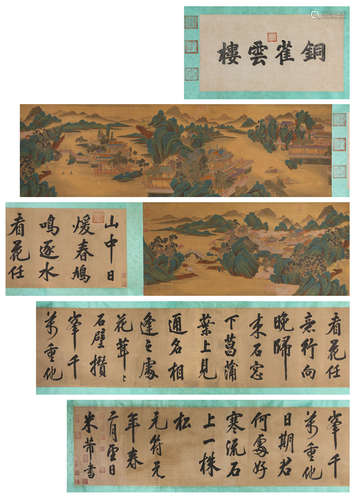 銅雀雲樓
山中日
暖春鳩
鳴逐水
看花任
看花任
意行向
晚歸
来石窓
下菖蒲
葉上見
通名相
逢之處
花茸々
石壁攢
峯千
萬重他
峯千
萬重他
日期君
何處好
寒流石
上一株
松
元符元
年春
二月日
米芾書